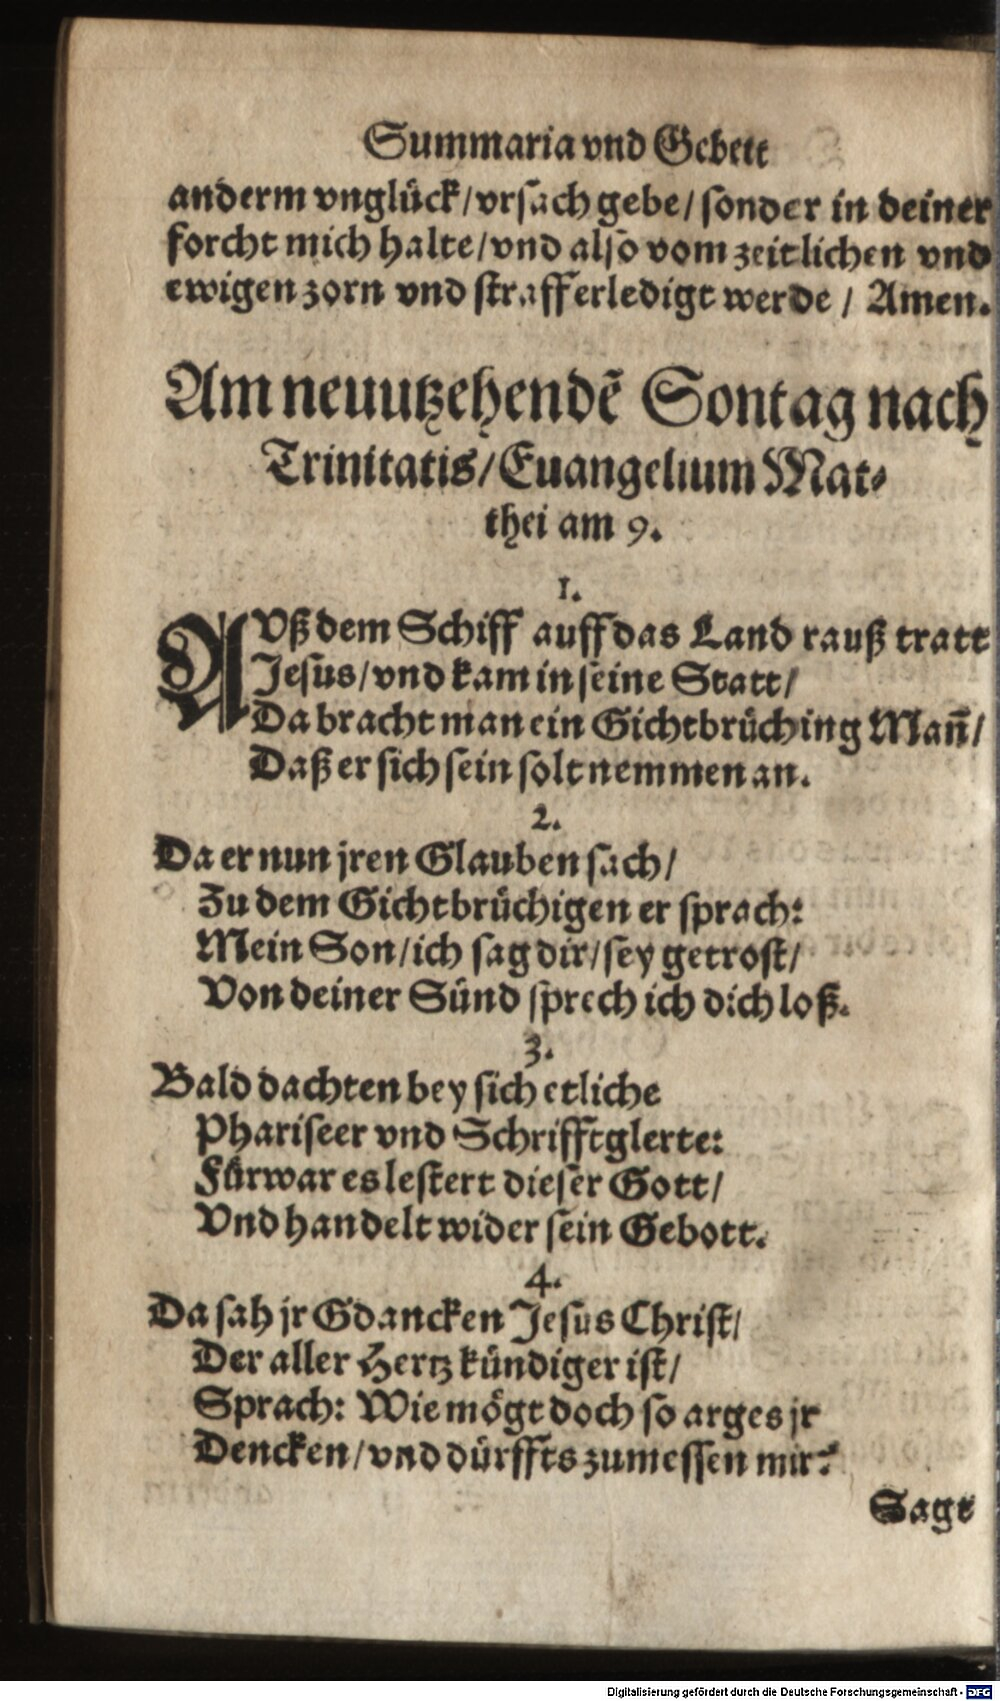 Summaria vnd Gebett
anderm vnglück/vrsach gebe/sonder in deiner
forcht mich halte/vnd also vom zeitlichen vnd
ewigen zorn vnd straff erledigt werde/ Amen.
Am neuutzehendẽ Sontag nach
Trinitatis/Euangelium Mat⸗
thei am 9.
1.
AVß dem Schiff auff das Land rauß tratt
Jesus/vnd kam in seine Statt/
Da bracht man ein Gichtbrüching Mañ/
Daß er sich sein solt nemmen an.
2.
Da er nun jren Glauben sach/
Zu dem Gichtbrüchigen er sprach:
Mein Son/ich sag dir/sey getrost/
Von deiner Sünd sprech ich dich loß.
3.
Bald dachten bey sich etliche
Phariseer vnd Schrifftglerte:
Fürwar es lestert dieser Gott/
Vnd handelt wider sein Gebott.
4.
Da sah jr Gdancken Jesus Christ/
Der aller Hertzkündiger ist/
Sprach: Wie mögt doch so arges jr
Dencken/vnd dürffts zumessen mir?
Sagt
Digitalisierung gefördert durch die Deutsche Forschungsgemeinschaft - DFG